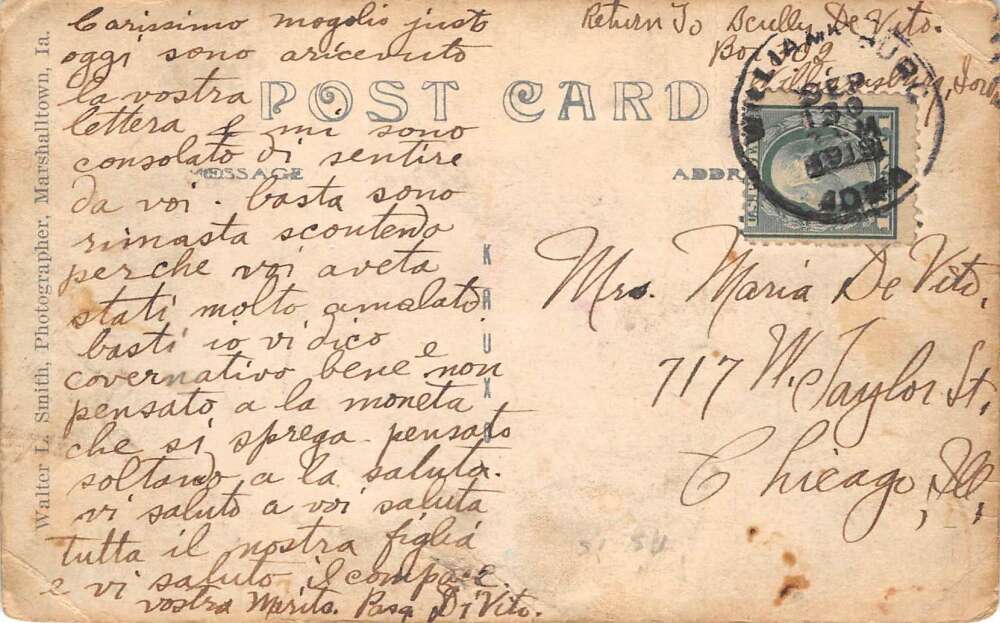 Carissimo mogolio justo
oggi sono aricevuto
la vostra
lettera e mi sono
consolato di sentire
da voi. basta sono
rimasta scontendo
perche voi aveta
stati molto amalato.
basti io vi dico
covernativo bene e non
pensato a la moneta
che si sprega. pensato
soltando a la saluta.
vi saluto a voi saluta
tutta il nostra figlia
e vi saluto il compare.
vostra Marito. Pasq. Di Vito.
Return To Scully De Vito.
Box
Williamsburg, Iowa
POST CARD
MESSAGE
ADDR
WILLIAMSBURG
SEP
30
1919
IOWA
Mrs. Maria De Vito.
717 W. Taylor St.
Chicago, Ill.
KRUXO
Walter L. Smith, Photographer, Marshalltown, Ia.